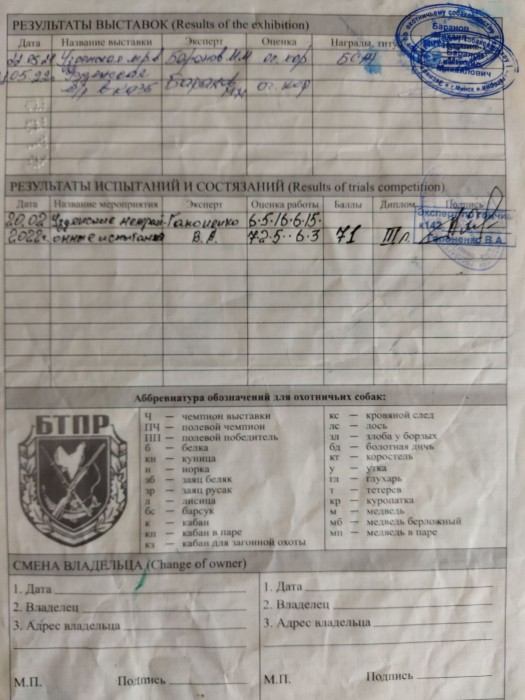 РЕЗУЛЬТАТЫ ВЫСТАВОК (Results of the exhibition)
Дата Название выставки Эксперт Оценка Награды,
Узденская Баранов М.М. оч. хор
05.22 Узденская Баранов оч. хор
М.М.
Баранов
Михайлович
РЕЗУЛЬТАТЫ ИСПЫТАНИЙ И СОСТЯЗАНИЙ (Results of trials competition)
Дата Название мероприятия Эксперт Оценка работы Баллы Диплом Подпись
20.02. Узденские Гапоненко 6·5·16·6·15·
2022г. испытания В.А. 71 III
Гапоненко В.А.
Аббревиатура обозначений для охотничьих собак:
БТПР
Ч — чемпион выставки
ПЧ — полевой чемпион
ПП — полевой победитель
б — белка
кн — куница
н — норка
зб — заяц беляк
зр — заяц русак
л — лисица
бс — барсук
к — кабан
кп — кабан в паре
кз — кабан для загонной охоты
кс — кровяной след
лс — лось
зл — злоба у борзых
бд — болотная дичь
кт — коростель
у — утка
гл — глухарь
т — тетерев
кр — куропатка
м — медведь
мб — медведь берложный
мп — медведь в паре
СМЕНА ВЛАДЕЛЬЦА (Change of owner)
1. Дата
2. Владелец
3. Адрес владельца
М.П. Подпись
1. Дата
2. Владелец
3. Адрес владельца
М.П. Подпись